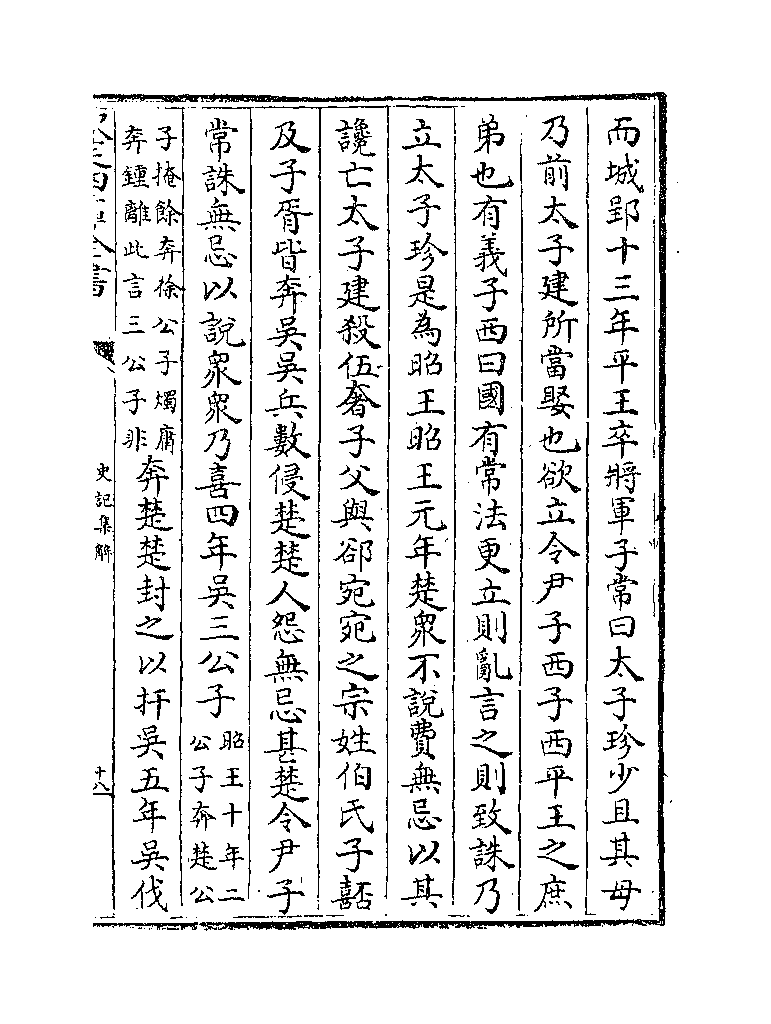 而城郢十三年平王卒將軍子常曰太子珍少且其母
乃前太子建所當娶也欲立令尹子西子西平王之庶
弟也有義子西曰國有常法更立則亂言之則致誅乃
立太子珍是為昭王昭王元年楚衆不說費無忌以其
讒亡太子建殺伍奢子父與郤宛宛之宗姓伯氏子嚭
及子胥皆奔吳吳兵數侵楚楚人怨無忌甚楚令尹子
常誅無忌以說衆衆乃喜四年吳三公子
昭王十年二
公子奔楚公
子掩餘奔徐公子燭庸
奔鍾離此言三公子非
奔楚楚封之以扞吳五年吳伐
史記集解
十八